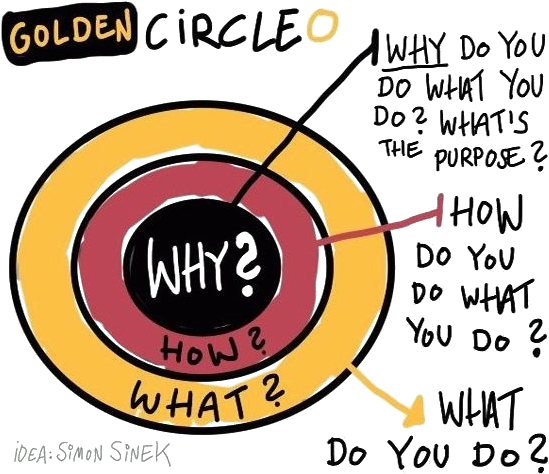 GOLDEN CiRCLE
WHY DO YOU
DO WHAT YOU
DO? WHAT'S
THE PURPOSE?
HOW
DO YOU
DO WHAT
YOU DO?
WHY?
HOW?
WHAT?
WHAT
DO YOU DO?
iDEA: SiMON SiNEK